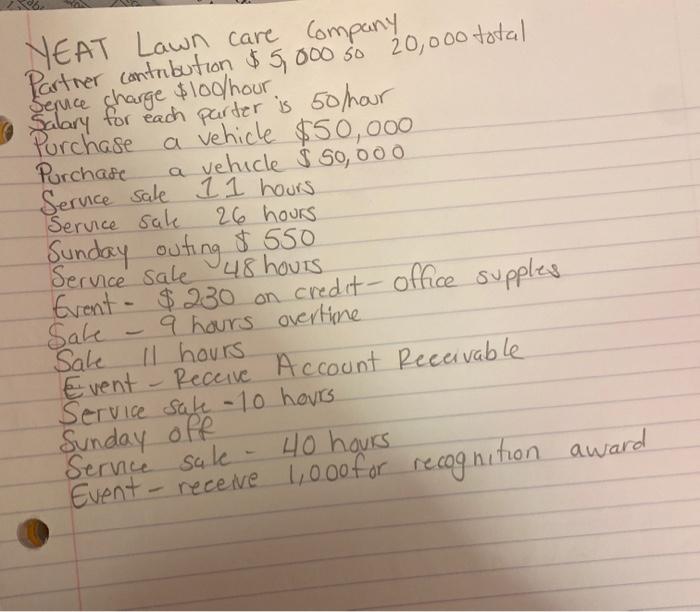 YEAT Lawn care Company
Partner contribution $ 5,000 so 20,000 total
Service charge $100/hour.
Salary for each parter is 50/hour
Purchase a vehicle $50,000
Purchase a vehicle $50,000
Service sale 11 hours
Service sale 26 hours
Sunday outing $ 550
Service sale 48 hours
Event - $230 on credit - office supples
Sale - 9 hours overtime
Sale 11 hours
Event - Receive Account Receivable
Service sale - 10 hours
Sunday off
Service sale - 40 hours
Event - receive 1,000 for recognition award